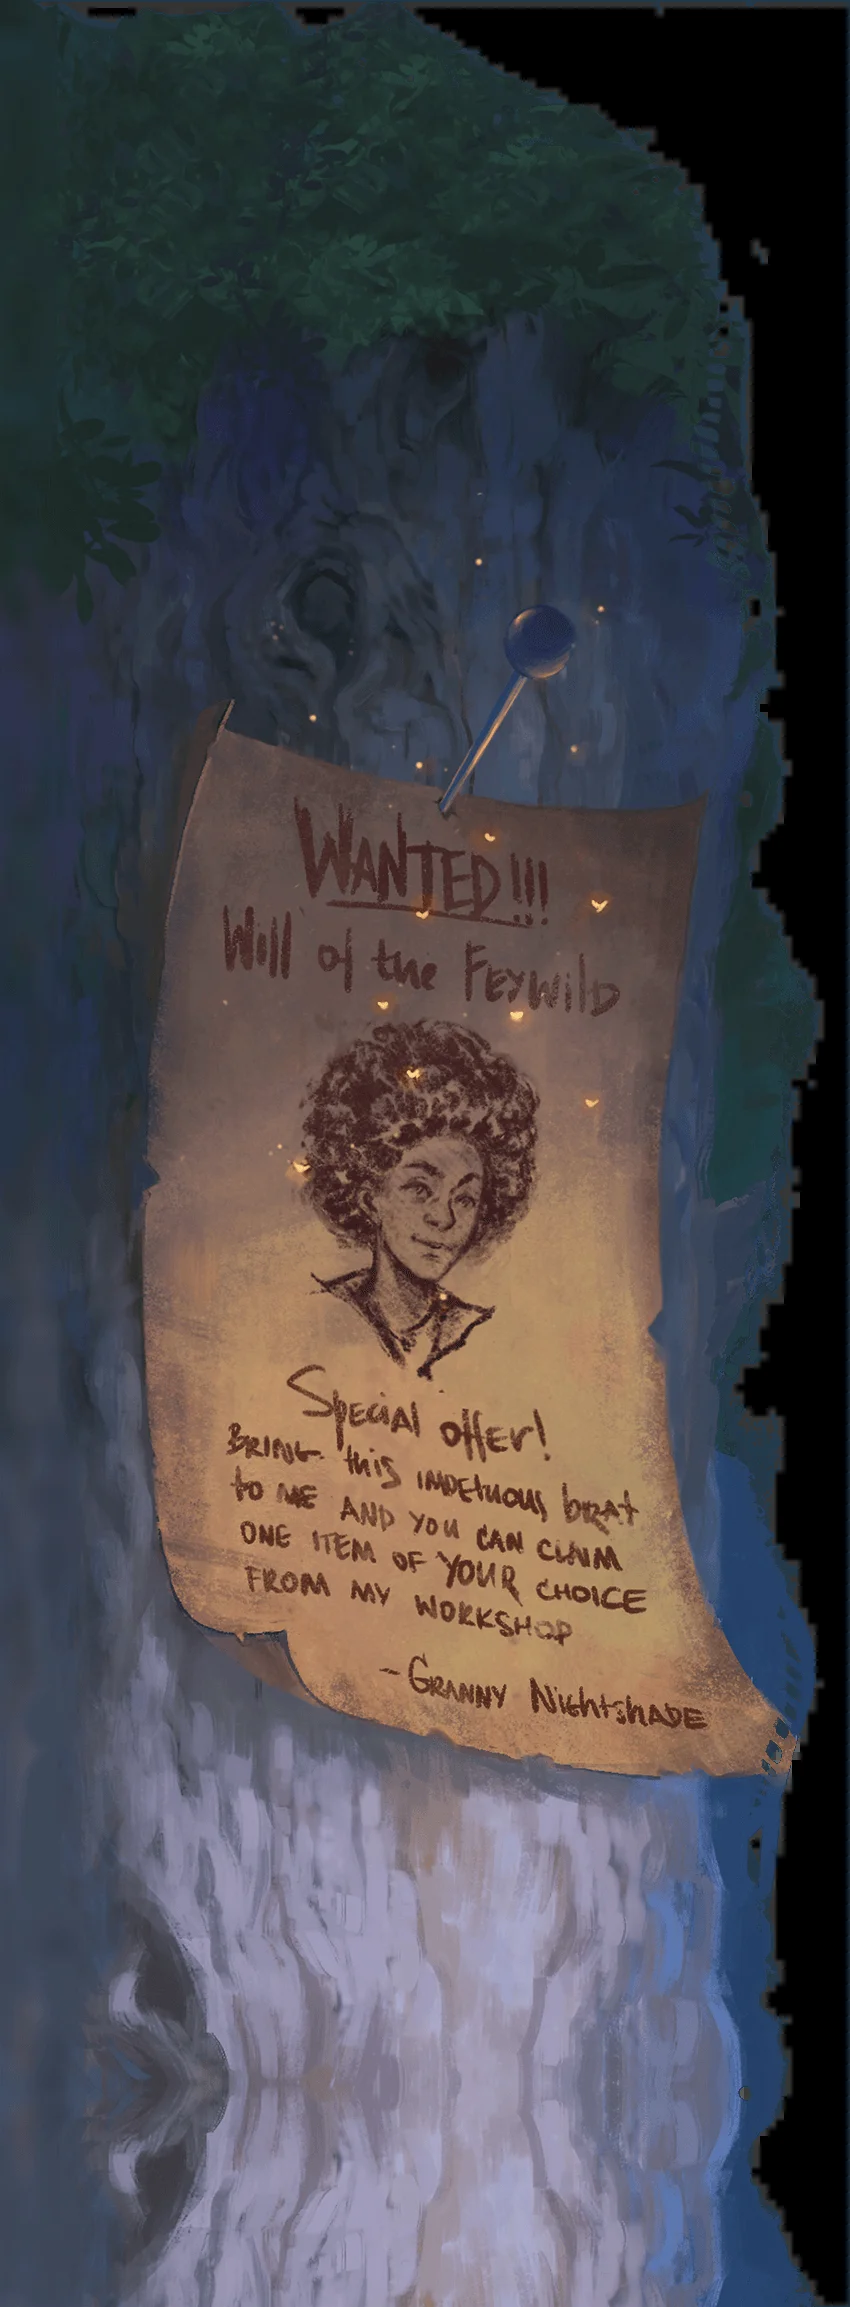 WANTED!!!
Will of the FEYWILD
SpeciAl offer!
BRING this IMPETUOUS brAt
to ME AND YOU CAN CLAIM
ONE ITEM OF YOUR CHOICE
FROM MY WORKSHOP
- GRANNY NightshADE